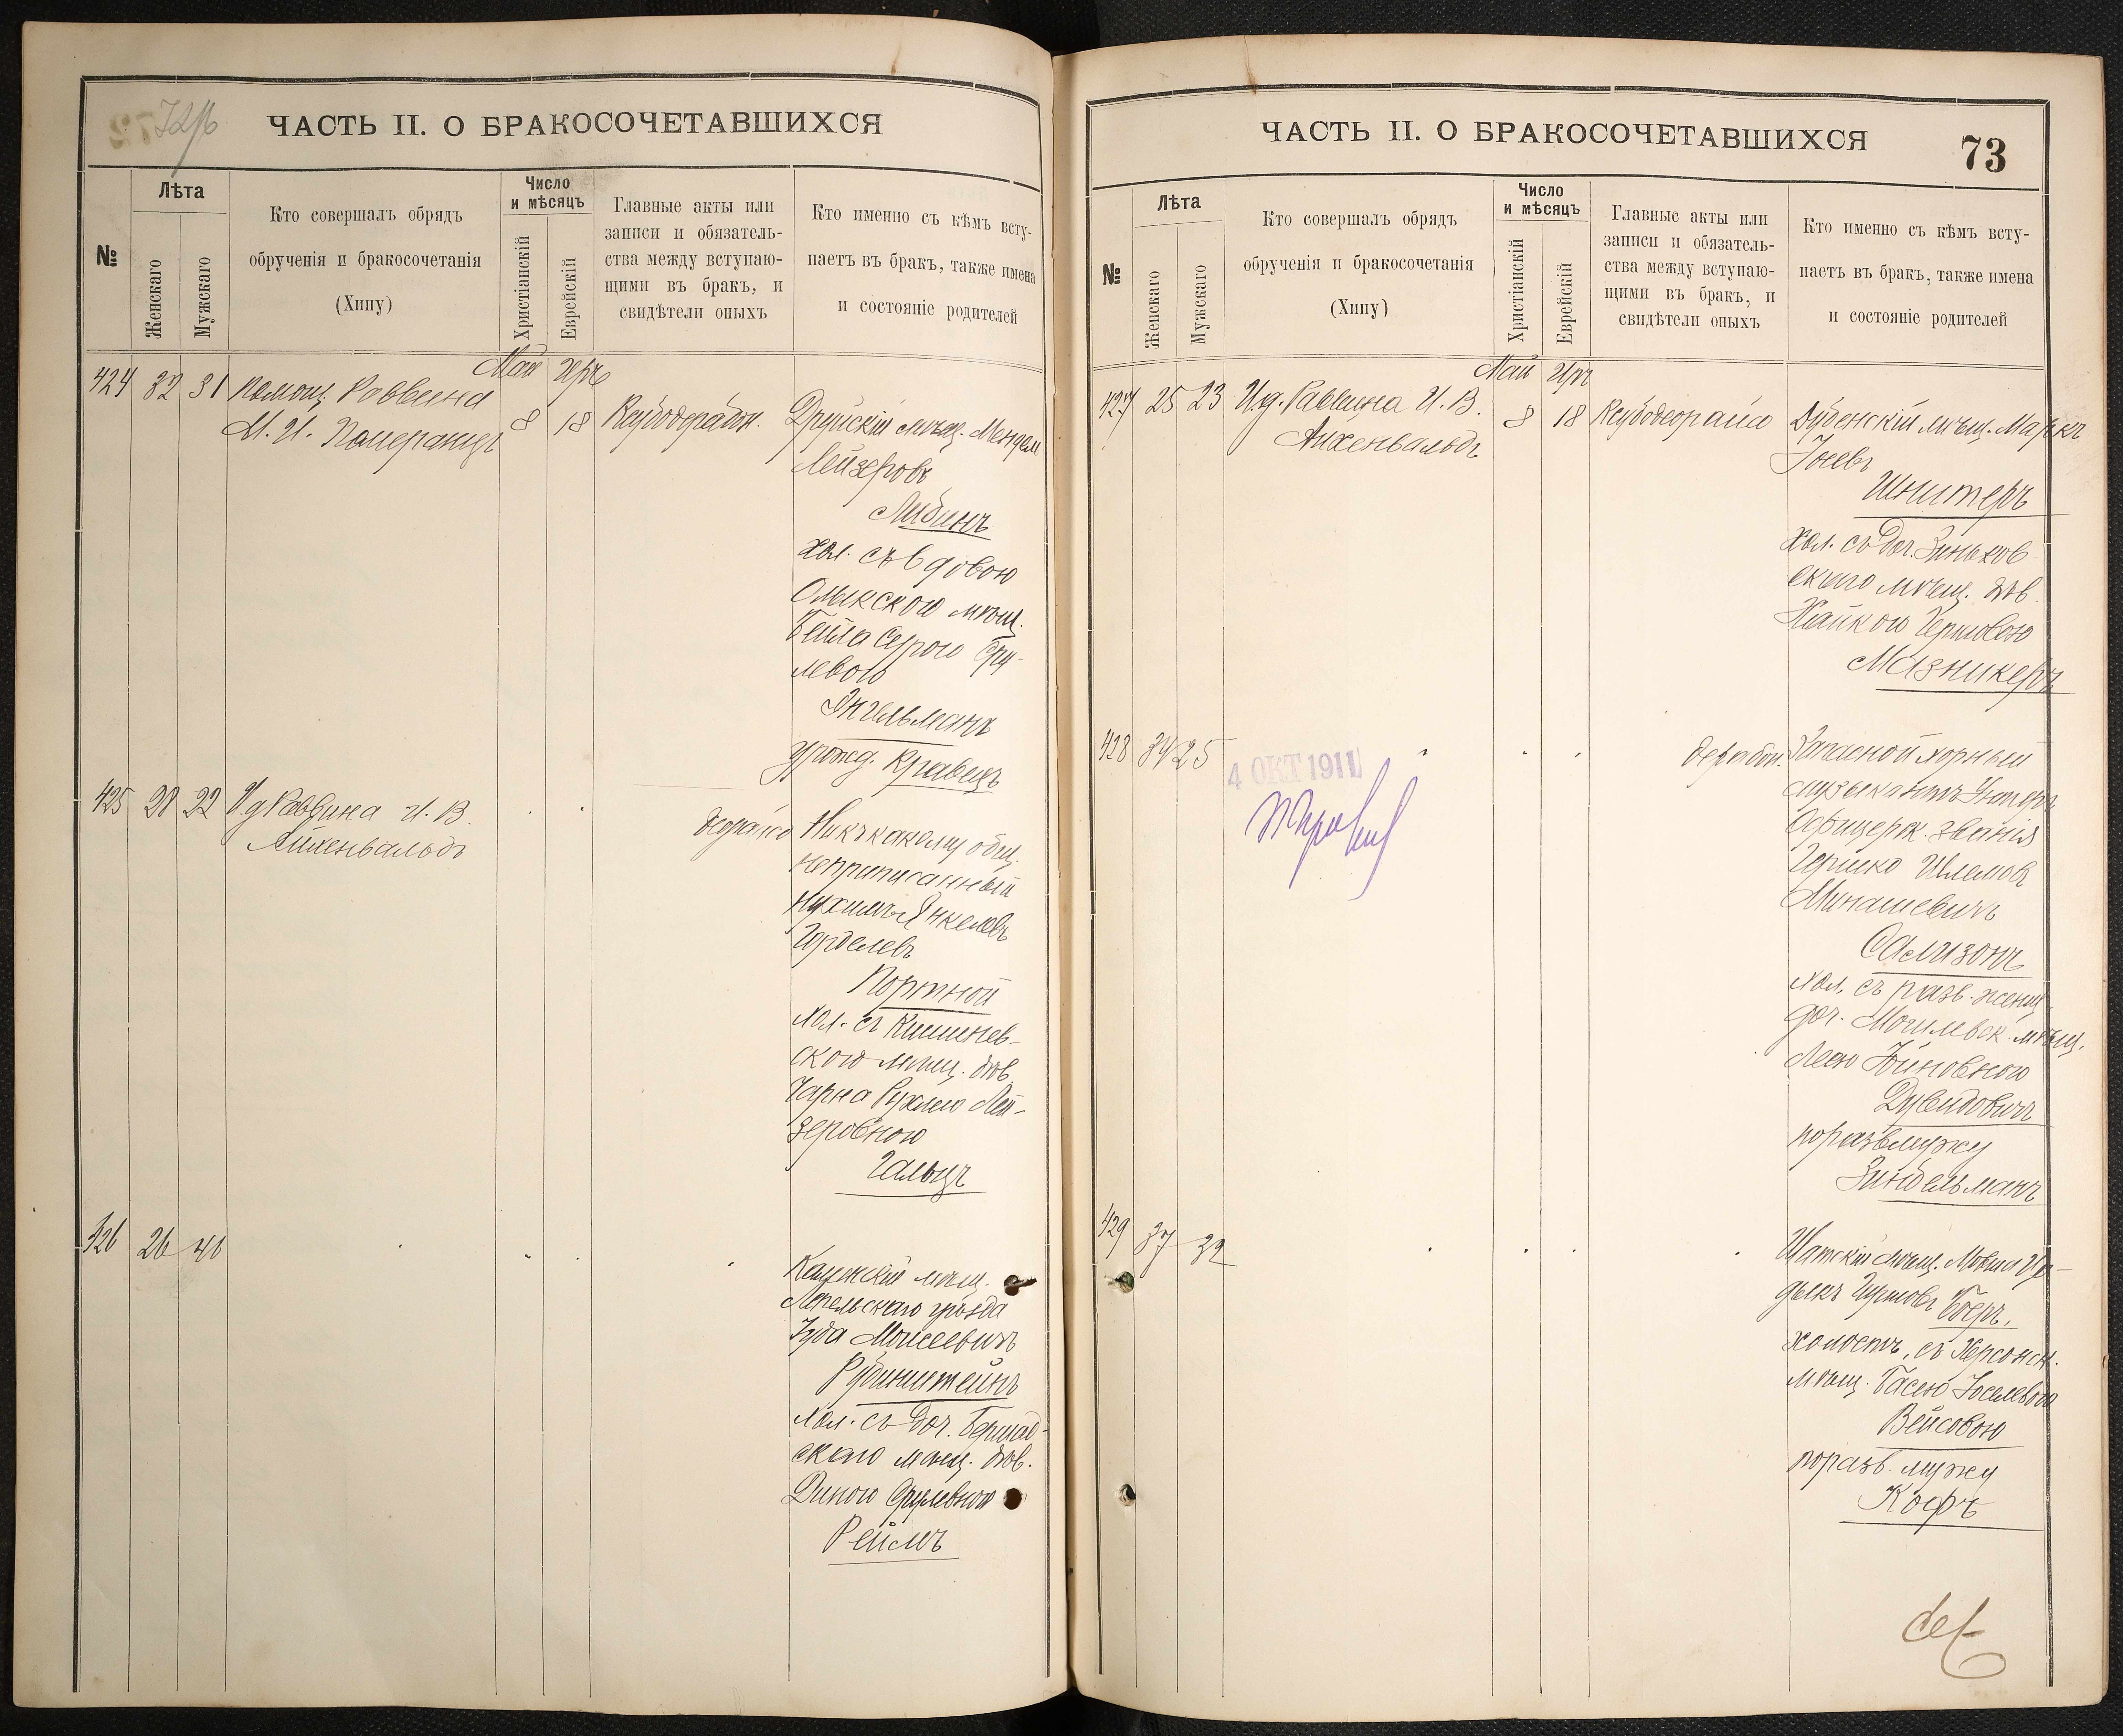 ЧАСТЬ II. О БРАКОСОЧЕТАВШИХСЯ
№
Лѣта
Женскаго
Мужскаго
Кто совершалъ обрядъ
обрученія и бракосочетанія
(Хипу)
Число
и мѣсяцъ
Христіанскій
Еврейскій
Главные акты или
записи и обязатель-
ства между вступаю-
щими въ бракъ, и
свидѣтели оныхъ
Кто именно съ кѣмъ всту-
паетъ въ бракъ, также имена
и состояніе родителей
Май Iіръ
424 32 31 Помощ. Раввина
М. И. Померанцъ
8 18
Друйскій мѣщ. Мендель
Лейзеровъ
Либинъ
хол. съ вдовою
Олыкскою мѣщ.
Бейла Сурою Сру-
левою
Энгельманъ
урожд. Кравецъ
425 28 22 И.д. Раввина И. В.
Айхенвальдъ
Никъ какому общ.
неприписанный
Нухимъ Янкелевъ
Портной
хол. съ Кишинев-
скою мѣщ. дѣв.
Чарна Рухлею Лей-
зеровною
Гальцъ
426 26 46
мѣщ.
Лепельскаго уѣзда
Іуда Моисеевичъ
Рубинштейнъ
хол. съ доч. Бершад-
скаго мѣщ. дѣв.
Диною Срулевною
Реймъ
ЧАСТЬ II. О БРАКОСОЧЕТАВШИХСЯ
73
№
Лѣта
Женскаго
Мужскаго
Кто совершалъ обрядъ
обрученія и бракосочетанія
(Хипу)
Число
и мѣсяцъ
Христіанскій
Еврейскій
Главные акты или
записи и обязатель-
ства между вступаю-
щими въ бракъ, и
свидѣтели оныхъ
Кто именно съ кѣмъ всту-
паетъ въ бракъ, также имена
и состояніе родителей
Май Iіръ
427 25 23 И.д. Раввина И. В.
Айхенвальдъ
8 18
Дубенскій мѣщ. Маркъ
Іосевъ
Шнитеръ
хол. съ доч. Зиньков-
скаго мѣщ. дѣв.
Хайкою
Мазникеръ
428 34 25
4 ОКТ 1911
Запасной хорный
музыкантъ Унтеръ
Офицерск. званія
Гершко Шлемовъ
Минашевичъ
Самизонъ
хол. съ разв. женщ.
доч. Могилевск. мѣщ.
Леею
Дувидовичъ
по разв. мужу
Зингельманъ
429 37 32
Шатскій мѣщ. Мовша
холостъ, съ Херсонск.
мѣщ. Басею Іоселевою
Вейсовою
по разв. мужу
Кофъ